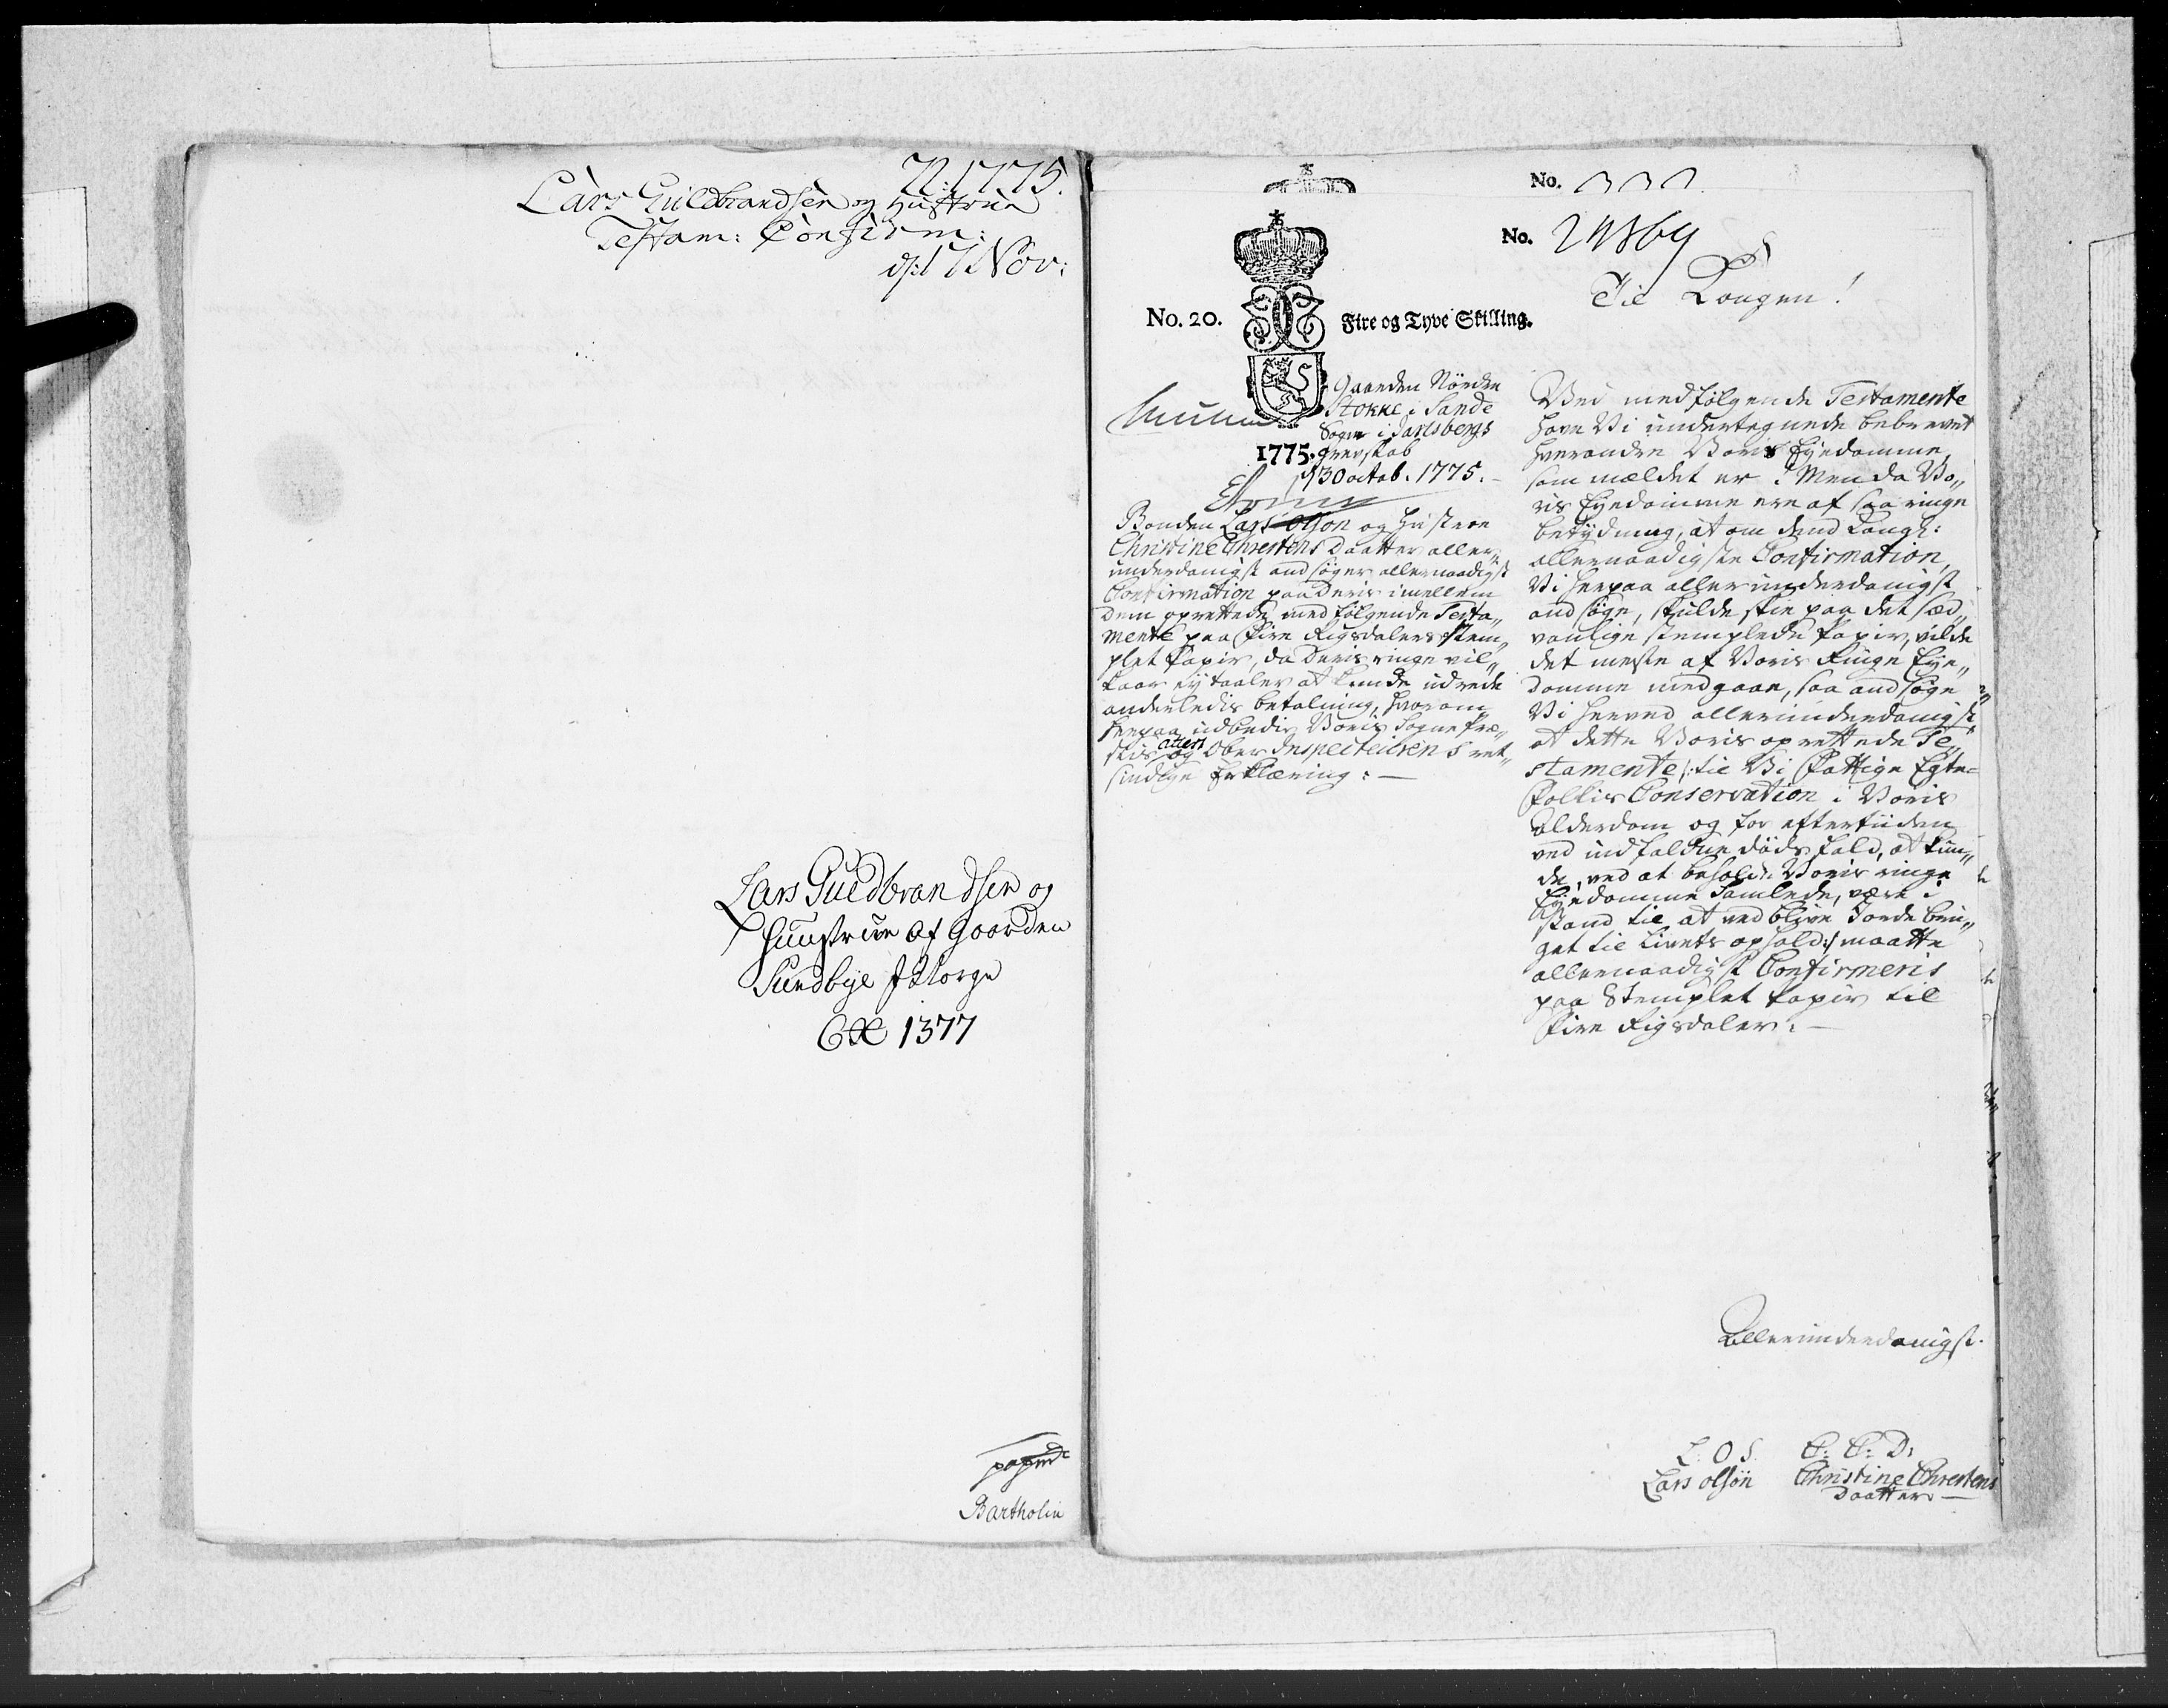 N: 1775.
Lars Guldbrandsen og Hustrue
Testam: Confirm:
d: 17 Nov:
Lars Guldbrandsen og
Huustrue af Gaarden
Sundbye i Norge
Exp 1377
Bartholin
No.
No. 24869
Til Kongen!
No. 20. Fire og Tyve Skilling.
Gaarden Nörden
Stokke i Sande
Sogn i Jarlsbergs
1775. Grevskab
d 30 octob. 1775.
Bonden Lars Olson og Hustrue
Christine Chrestens Daatter aller„
underdanigst andsøger allernaadigst
Confirmation paa deris imellem
dem oprettede medfølgende Testa„
mente paa Fire Rigsdalers Stem„
plet Papir, da Deris ringe vil„
kaar ey taaler at kunde udrede
anderledis betalning, hvorom
herpaa udbedis Voris Sogne Præ„
stis attest og Ober Inspecteurens ret„
sindige Erklæring: —
Ved medfølgende Testamente
have Vi undertegnede bebrevet
hverandre Voris Eyedomme,
som meldet er: Men da Vo„
ris Eyedomme ere af saa ringe
betydning, at om dend Kongl:
allernaadigste Confirmation,
Vi herpaa allerunderdanigst
andsøge, skulde skee paa det sæd„
vanlige stemplede Papir, vilde
det meste af Voris Ringe Eye„
domme medgaae, saa andsøge
Vi herved allerunderdanigst,
at dette Voris oprettede Te„
stamente /: til Vi Fattige Egte=
Folkis Conservation i Voris
Alderdom og for eftertiiden
ved indfaldne dødsfald, at kun„
de, ved at beholde Voris ringe
Eyedomme samlede, være i
stand til at vedblive Jordebru„
get til Livets ophold :/ maatte
allernaadigst Confirmeris
paa Stemplet Papir til
Fire Rigsdaler: —
Allerunderdanigst.
L: O S. C: C: D:
Lars olsön Christine Chrestens
Daatter —